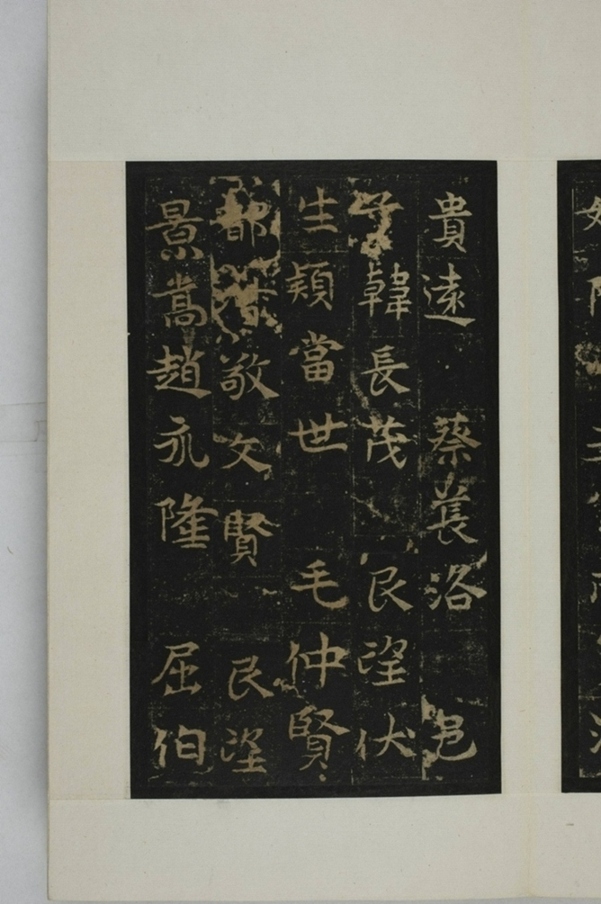 貴遠 蔡萇洛 邑
子韓長茂 民望伏
生穎當世 毛仲賢
都 敬文賢 民望
景嵩趙永隆 屈伯